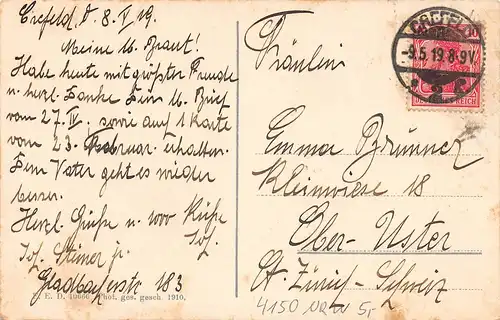 Crefeld, d. 8. V. 19.
Meine lb. Braut!
Habe heute mit größter Freude
u. herzl. Danke Dein lb. Brief
vom 27. IV. sowie auf 1 Karte
vom 23. Februar erhalten.
Dein Vater geht es wieder
besser.
Herzl. Grüße u. 1000 Küße
Jos.
Jos. Steiner jr.
Gladbacherstr 183
E. D. Phot. ges. gesch. 1910.
CREFELD
-9.5.19.8-9V.
* 2
10
DEUTSCHES REICH
Fräulein
Emma Brunner
Kleinwiese 18
Ober-Uster
Kt. Zürich-Schweiz
4150 NRW 5,-